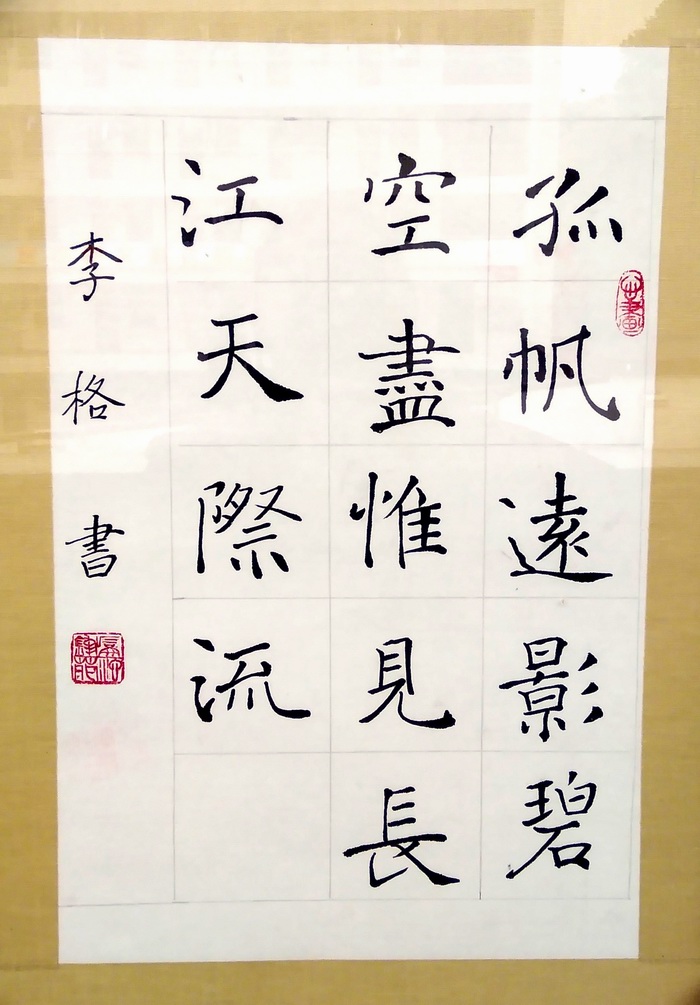 孤帆遠影碧
空盡惟見長
江天際流
李格書